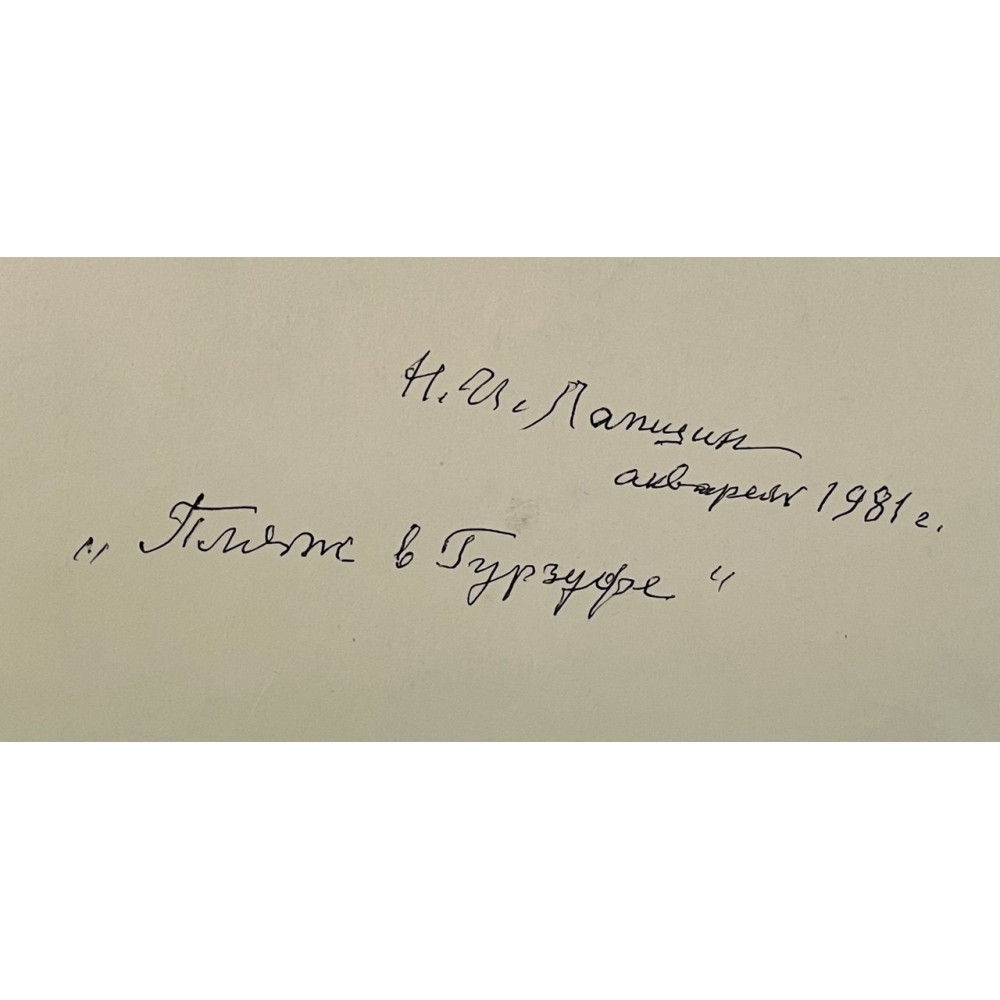 Н. И. Лапшин
акварель 1981 г.
„Пляж в Гурзуфе"